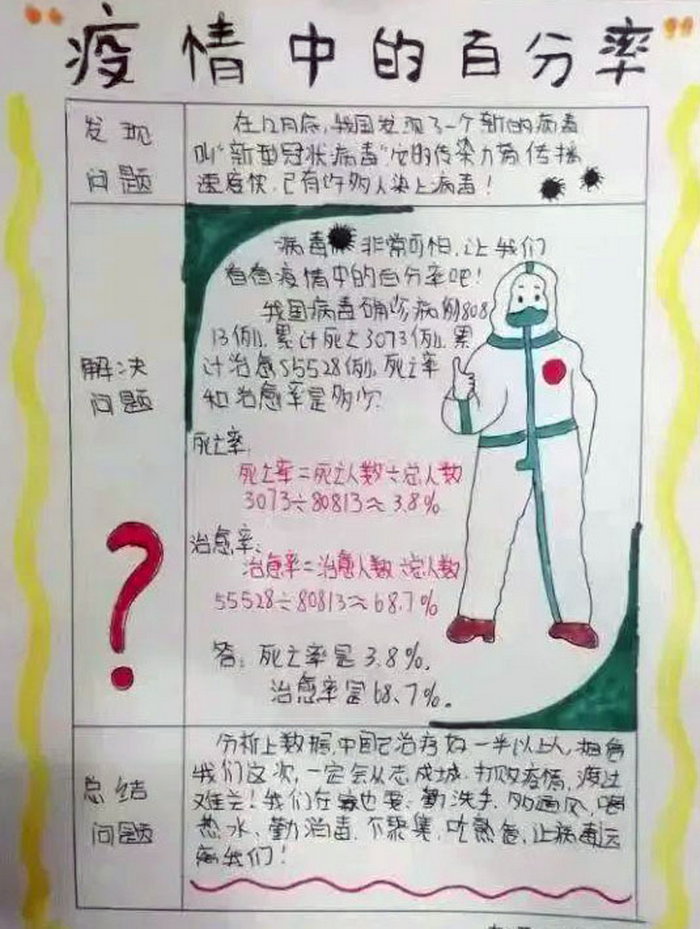 疫情中的百分率
发现
问题
在12月底,我国发现了一个新的病毒
叫"新型冠状病毒"它的传染力高传播
速度快,已有许多人染上病毒!
解决
问题
病毒非常可怕,让我们
看看疫情中的百分率吧!
我国病毒确诊病例808
13例,累计死亡3073例,累
计治愈55528例,死亡率
和治愈率是多少?
死亡率:
死亡率=死亡人数÷总人数
3073÷80813≈3.8%
治愈率:
治愈率=治愈人数÷总人数
55528÷80813≈68.7%
答:死亡率是3.8%,
治愈率是68.7%。
?
总结
问题
分析上数据,中国已治疗好一半以上人,相信
我们这次,一定会众志成城,打败疫情,渡过
难关!我们在家也要:勤洗手,多通风,喝
热水、勤消毒,不聚集,吃熟食,让病毒远
离我们!